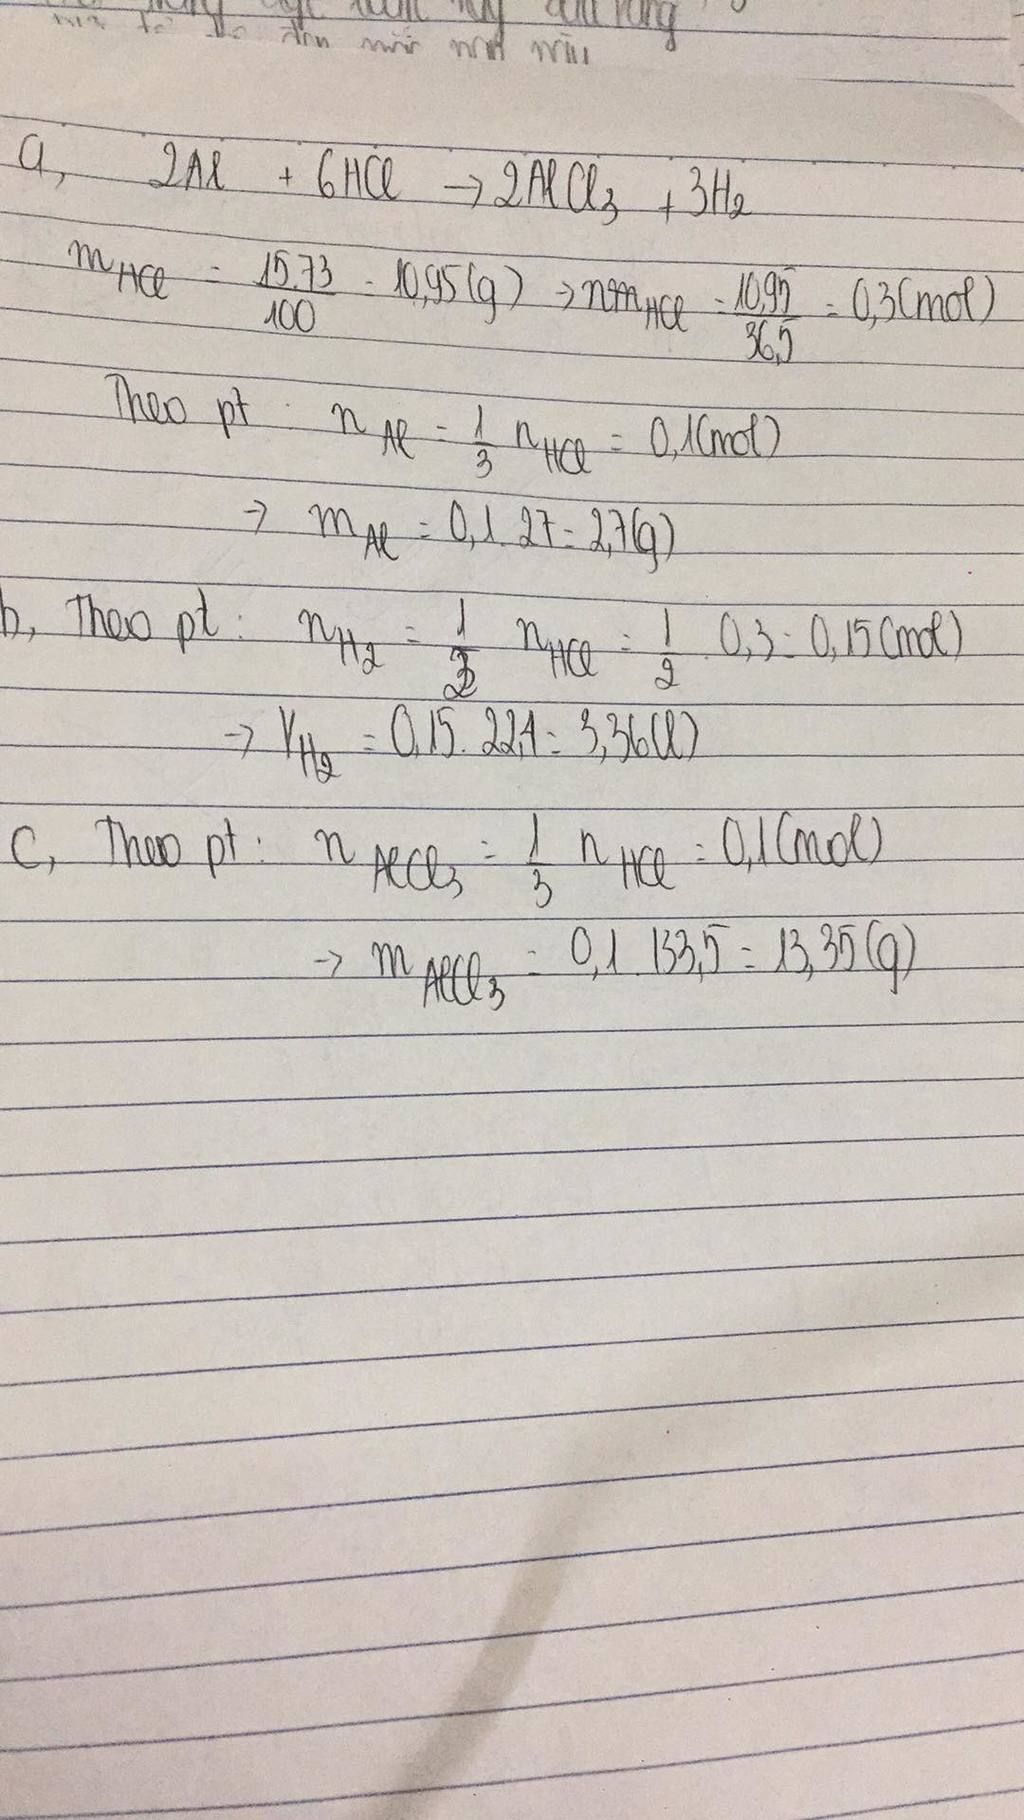 a, 2Al + 6HCl → 2AlCl₃ + 3H₂
m HCl = 15.73/100 = 10,95(g) → nm HCl = 10,95/36,5 = 0,3(mol)
Theo pt : n Al = 1/3 n HCl = 0,1(mol)
→ m Al = 0,1.27 = 2,7(g)
b, Theo pt : n H₂ = 1/2 n HCl = 1/2 . 0,3 = 0,15(mol)
→ V H₂ = 0,15.22,4 = 3,36(l)
c, Theo pt : n AlCl₃ = 1/3 n HCl = 0,1(mol)
→ m AlCl₃ = 0,1.133,5 = 13,35(g)